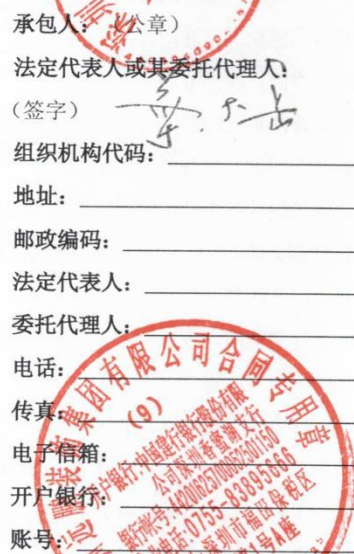 承包人：（公章）
法定代表人或其委托代理人：
（签字）
组织机构代码：
地址：
邮政编码：
法定代表人：
委托代理人：
电话：
传真：
电子信箱：
开户银行：
账号：
装饰集团有限公司合同专用章
(9)
开户银行:中国建行银行股份有限
公司深圳香蜜湖支行
银行帐号:4420062570005250150
电话:0755-83895666
深圳市福田保税区